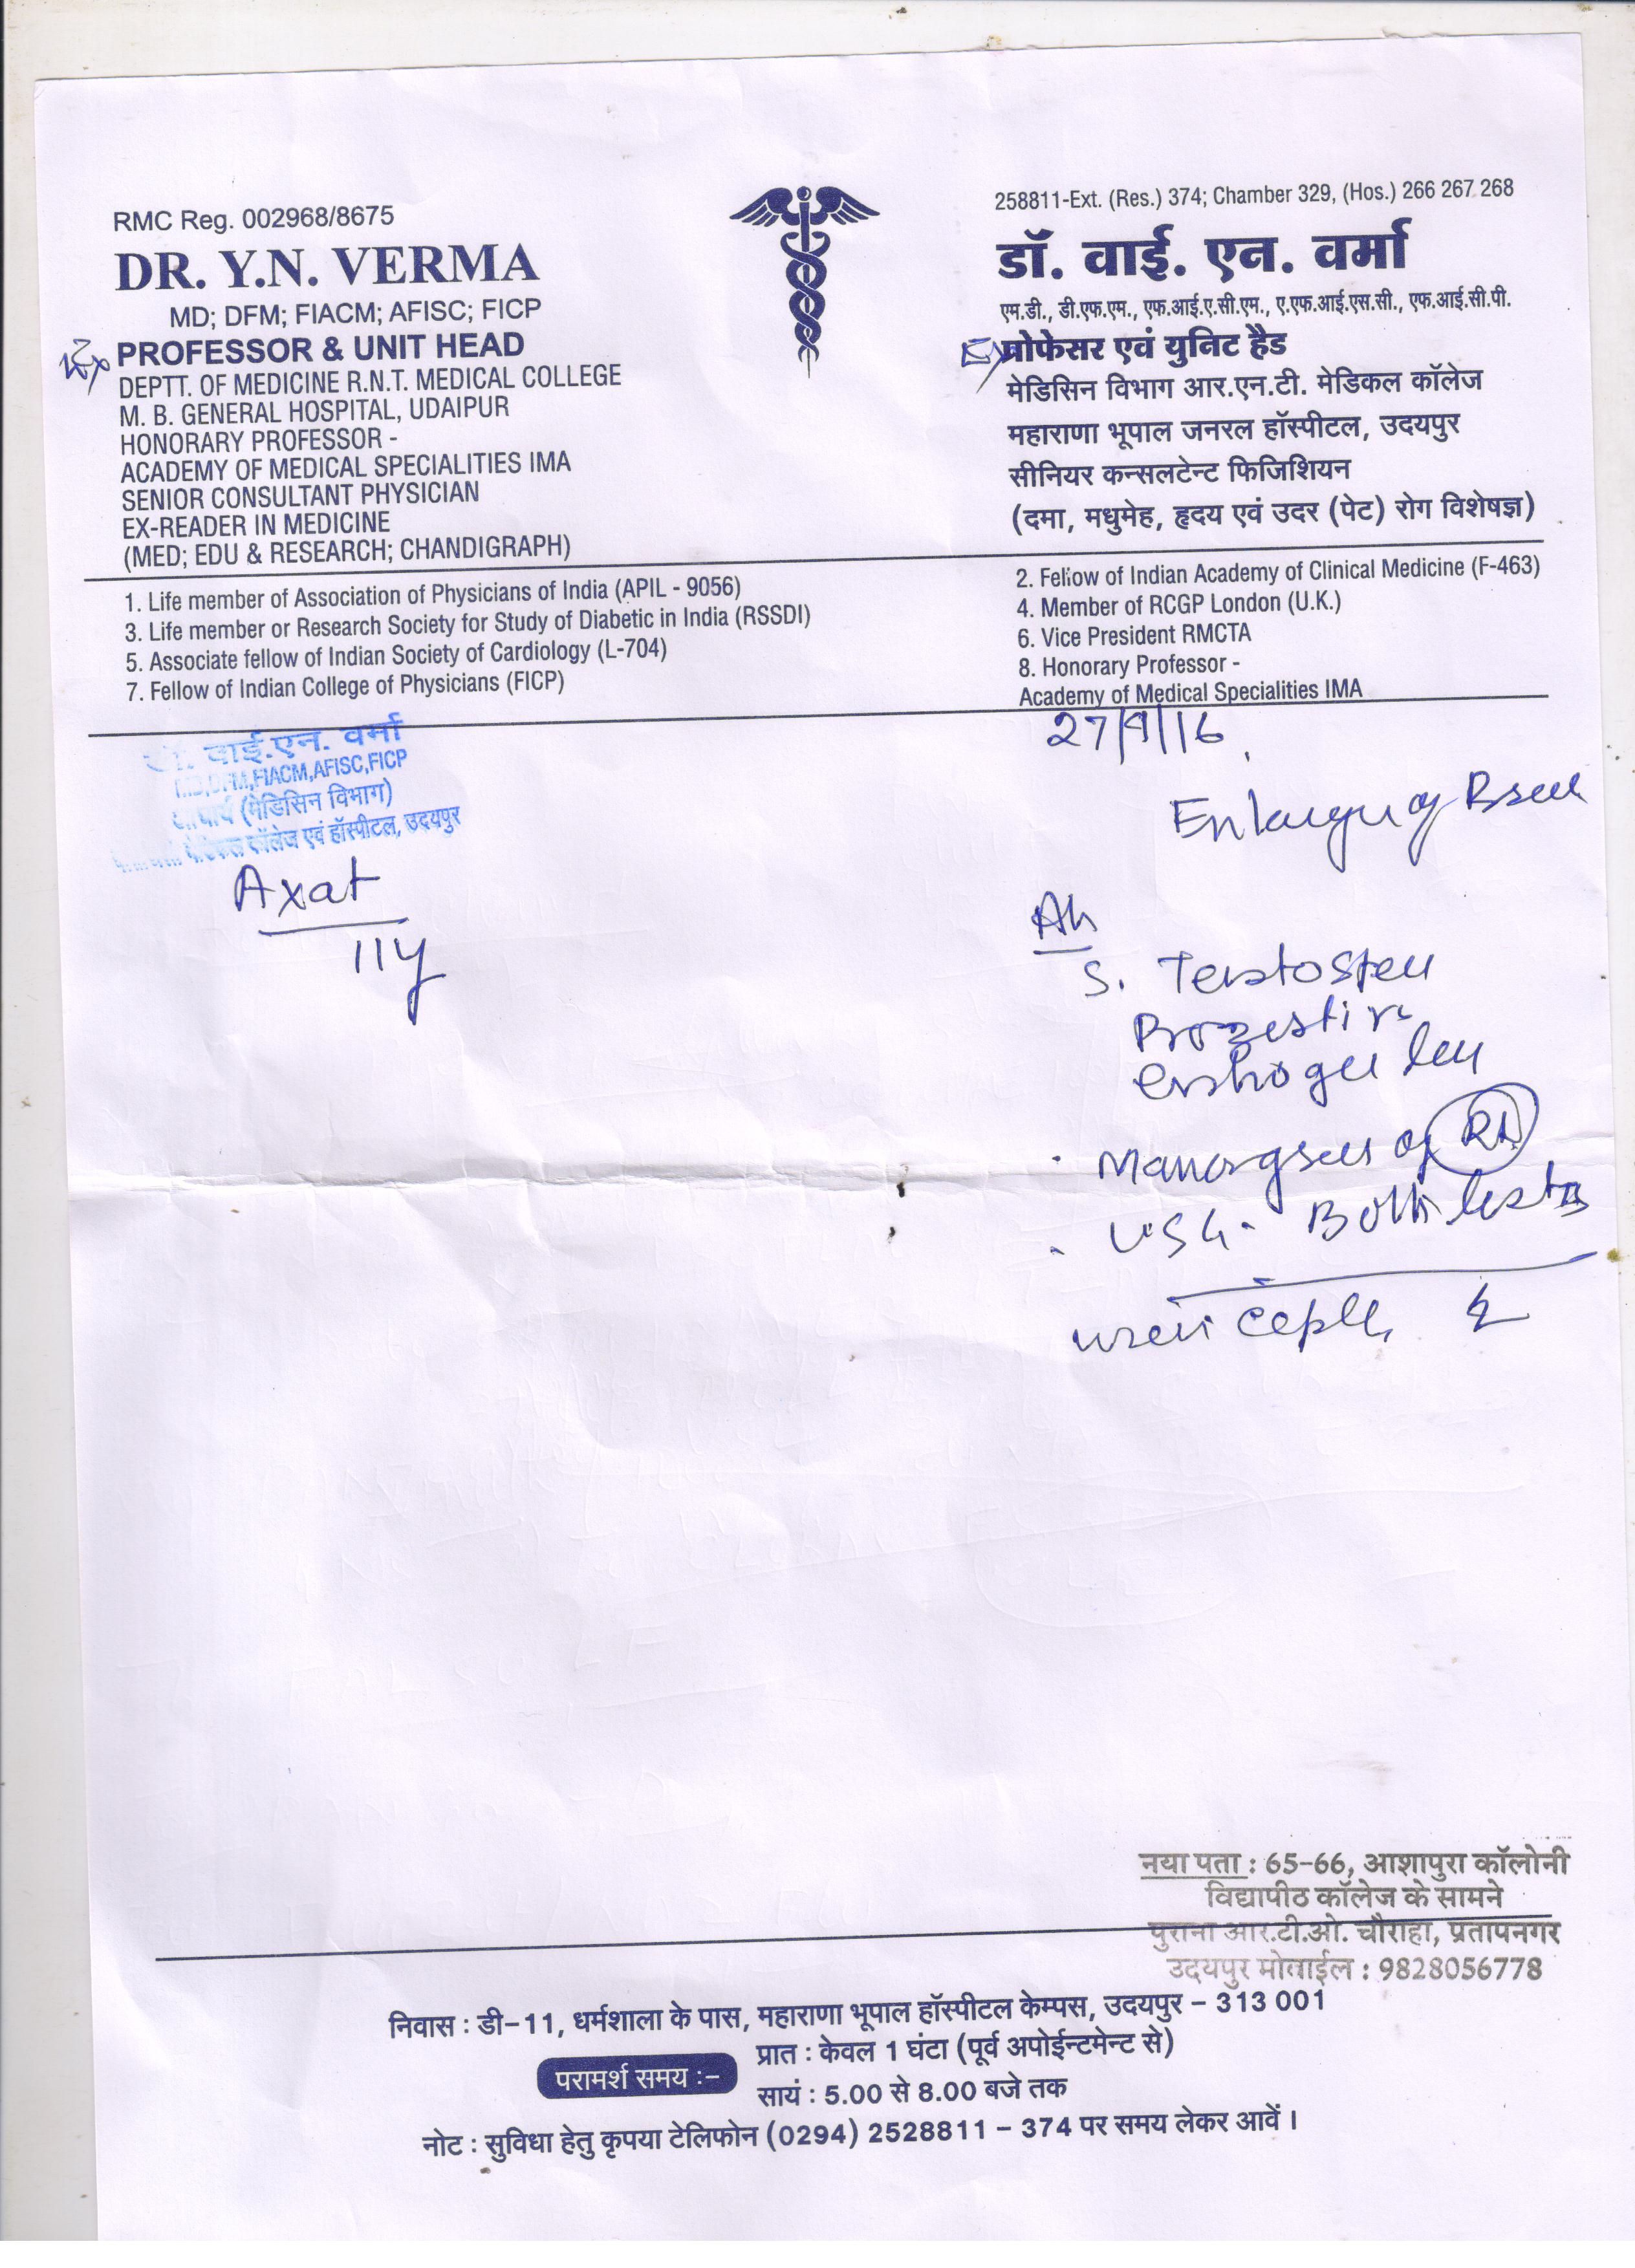 RMC Reg. 002968/8675
DR. Y.N. VERMA
MD; DFM; FIACM; AFISC; FICP
Ex PROFESSOR & UNIT HEAD
DEPTT. OF MEDICINE R.N.T. MEDICAL COLLEGE
M. B. GENERAL HOSPITAL, UDAIPUR
HONORARY PROFESSOR -
ACADEMY OF MEDICAL SPECIALITIES IMA
SENIOR CONSULTANT PHYSICIAN
EX-READER IN MEDICINE
(MED; EDU & RESEARCH; CHANDIGRAPH)
258811-Ext. (Res.) 374; Chamber 329, (Hos.) 266 267 268
डॉ. वाई. एन. वर्मा
एम.डी., डी.एफ.एम., एफ.आई.ए.सी.एम., ए.एफ.आई.एस.सी., एफ.आई.सी.पी.
Ex प्रोफेसर एवं युनिट हैड
मेडिसिन विभाग आर.एन.टी. मेडिकल कॉलेज
महाराणा भूपाल जनरल हॉस्पीटल, उदयपुर
सीनियर कन्सलटेन्ट फिजिशियन
(दमा, मधुमेह, हृदय एवं उदर (पेट) रोग विशेषज्ञ)
1. Life member of Association of Physicians of India (APIL - 9056)
2. Fellow of Indian Academy of Clinical Medicine (F-463)
3. Life member or Research Society for Study of Diabetic in India (RSSDI)
4. Member of RCGP London (U.K.)
5. Associate fellow of Indian Society of Cardiology (L-704)
6. Vice President RMCTA
7. Fellow of Indian College of Physicians (FICP)
8. Honorary Professor -
Academy of Medical Specialities IMA
वाई.एन. वर्मा
FIACM,AFISC,FICP
(मेडिसिन विभाग)
कॉलेज एवं हॉस्पीटल, उदयपुर
27/9/16
Axat
11y
S.
USG - Both
नया पता : 65-66, आशापुरा कॉलोनी
विद्यापीठ कॉलेज के सामने
पुराना आर.टी.ओ. चौराहा, प्रतापनगर
उदयपुर मोबाईल : 9828056778
निवास : डी-11, धर्मशाला के पास, महाराणा भूपाल हॉस्पीटल केम्पस, उदयपुर - 313 001
परामर्श समय :- प्रात : केवल 1 घंटा (पूर्व अपोईन्टमेन्ट से)
सायं : 5.00 से 8.00 बजे तक
नोट : सुविधा हेतु कृपया टेलिफोन (0294) 2528811 - 374 पर समय लेकर आवें ।